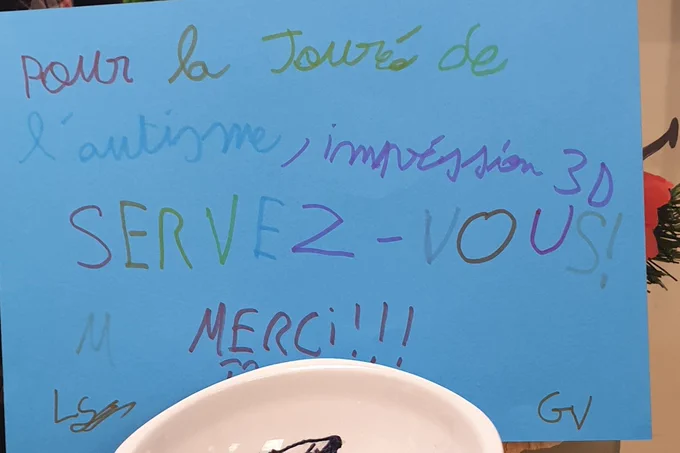 Pour la Jouré de
l'autisme, impréssion 3D
SERVEZ-VOUS!
M MERCi!!!
GV